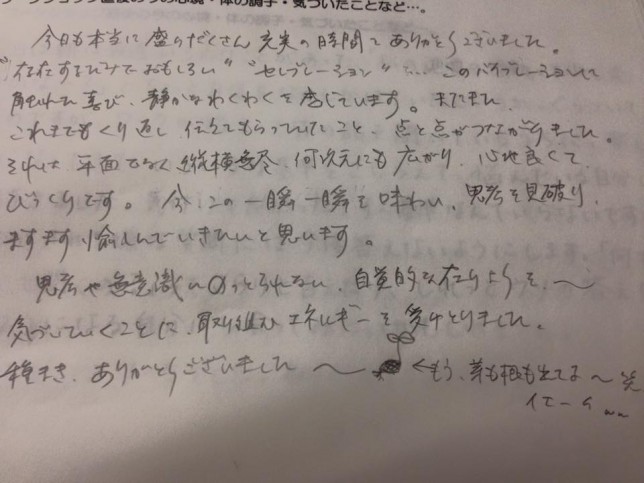 ワークショップ直後の今の心境・体の調子・気づいたことなど…。
今日も本当に盛りだくさん充実の時間でありがとうございました。
"存在するだけでおもしろい" "セレブレーション" … このバイブレーションに
触れて喜び、静かなわくわくを感じています。またまた、
これまでもくり返し伝えてもらっていたこと、点と点がつながりました。
それは平面でなく縦横無尽 何次元にも広がり、心地良くて、
びっくりです。今この一瞬一瞬を味わい、思考を見破り、
ますます愉しんでいきたいと思います。
思考や無意識にのっとられない、自覚的な在りようを、〜
気づいていくことに、取り組むエネルギーを受けとりました。
種まき、ありがとうございました 〜 ←もう、芽も根も出てる〜笑
イエーイ